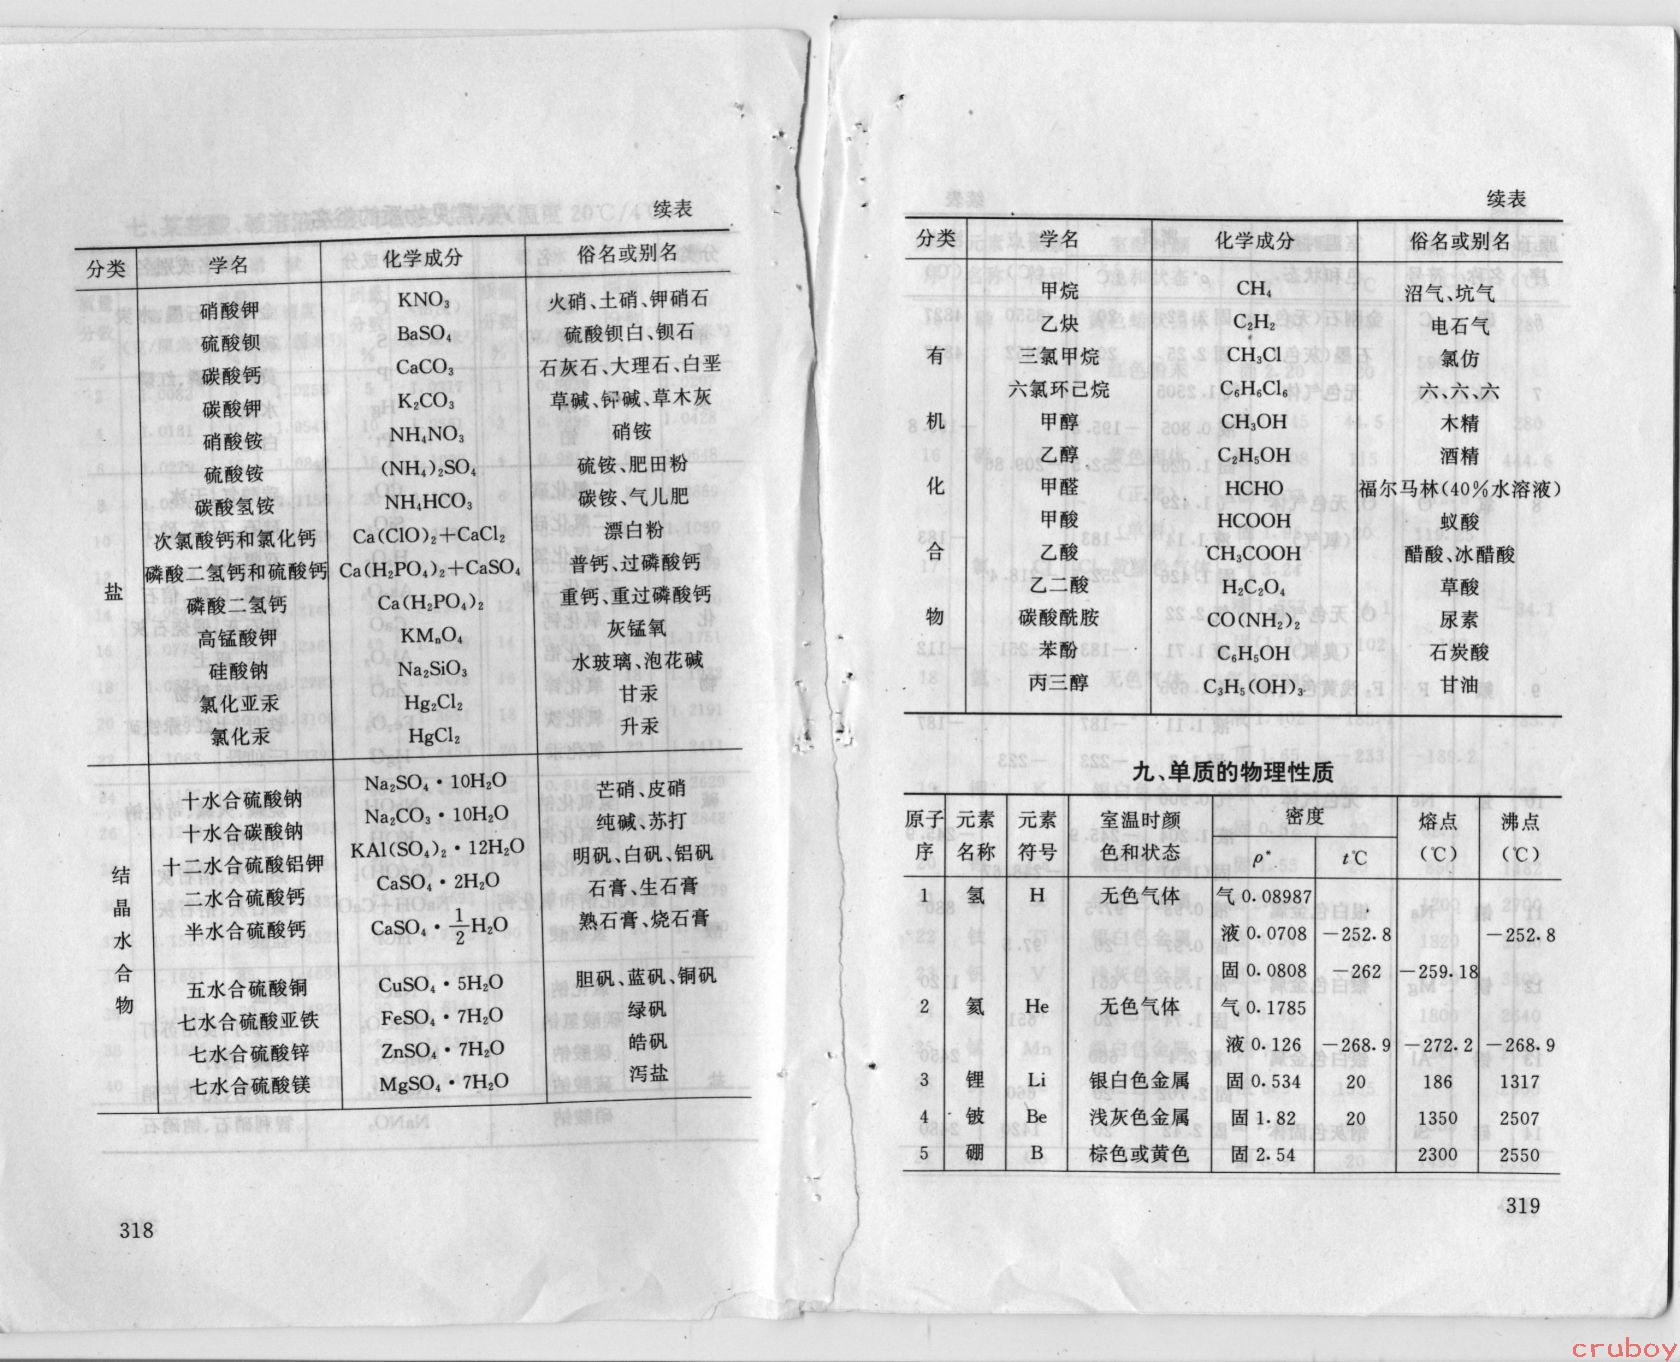 续表
分类 学名 化学成分 俗名或别名
硝酸钾 KNO₃ 火硝、土硝、钾硝石
硫酸钡 BaSO₄ 硫酸钡白、钡石
碳酸钙 CaCO₃ 石灰石、大理石、白垩
碳酸钾 K₂CO₃ 草碱、锌碱、草木灰
硝酸铵 NH₄NO₃ 硝铵
硫酸铵 (NH₄)₂SO₄ 硫铵、肥田粉
碳酸氢铵 NH₄HCO₃ 碳铵、气儿肥
次氯酸钙和氯化钙 Ca(ClO)₂+CaCl₂ 漂白粉
磷酸二氢钙和硫酸钙 Ca(H₂PO₄)₂+CaSO₄ 普钙、过磷酸钙
盐 磷酸二氢钙 Ca(H₂PO₄)₂ 重钙、重过磷酸钙
高锰酸钾 KMₙO₄ 灰锰氧
硅酸钠 Na₂SiO₃ 水玻璃、泡花碱
氯化亚汞 Hg₂Cl₂ 甘汞
氯化汞 HgCl₂ 升汞
十水合硫酸钠 Na₂SO₄·10H₂O 芒硝、皮硝
十水合碳酸钠 Na₂CO₃·10H₂O 纯碱、苏打
十二水合硫酸铝钾 KAl(SO₄)₂·12H₂O 明矾、白矾、铝矾
结 二水合硫酸钙 CaSO₄·2H₂O 石膏、生石膏
晶 半水合硫酸钙 CaSO₄·1/2H₂O 熟石膏、烧石膏
水
合 五水合硫酸铜 CuSO₄·5H₂O 胆矾、蓝矾、铜矾
物 七水合硫酸亚铁 FeSO₄·7H₂O 绿矾
七水合硫酸锌 ZnSO₄·7H₂O 皓矾
七水合硫酸镁 MgSO₄·7H₂O 泻盐
318
续表
分类 学名 化学成分 俗名或别名
甲烷 CH₄ 沼气、坑气
乙炔 C₂H₂ 电石气
有 三氯甲烷 CH₃Cl 氯仿
六氯环己烷 C₆H₆Cl₆ 六、六、六
机 甲醇 CH₃OH 木精
乙醇 C₂H₅OH 酒精
化 甲醛 HCHO 福尔马林(40%水溶液)
甲酸 HCOOH 蚁酸
合 乙酸 CH₃COOH 醋酸、冰醋酸
乙二酸 H₂C₂O₄ 草酸
物 碳酸酰胺 CO(NH₂)₂ 尿素
苯酚 C₆H₅OH 石炭酸
丙三醇 C₃H₅(OH)₃ 甘油
九、单质的物理性质
原子 元素 元素 室温时颜 密度 熔点 沸点
序 名称 符号 色和状态 ρ* t℃ (℃) (℃)
1 氢 H 无色气体 气 0.08987
液 0.0708 -252.8 -252.8
固 0.0808 -262 -259.18
2 氦 He 无色气体 气 0.1785
液 0.126 -268.9 -272.2 -268.9
3 锂 Li 银白色金属 固 0.534 20 186 1317
4 铍 Be 浅灰色金属 固 1.82 20 1350 2507
5 硼 B 棕色或黄色 固 2.54 2300 2550
319
cruboy